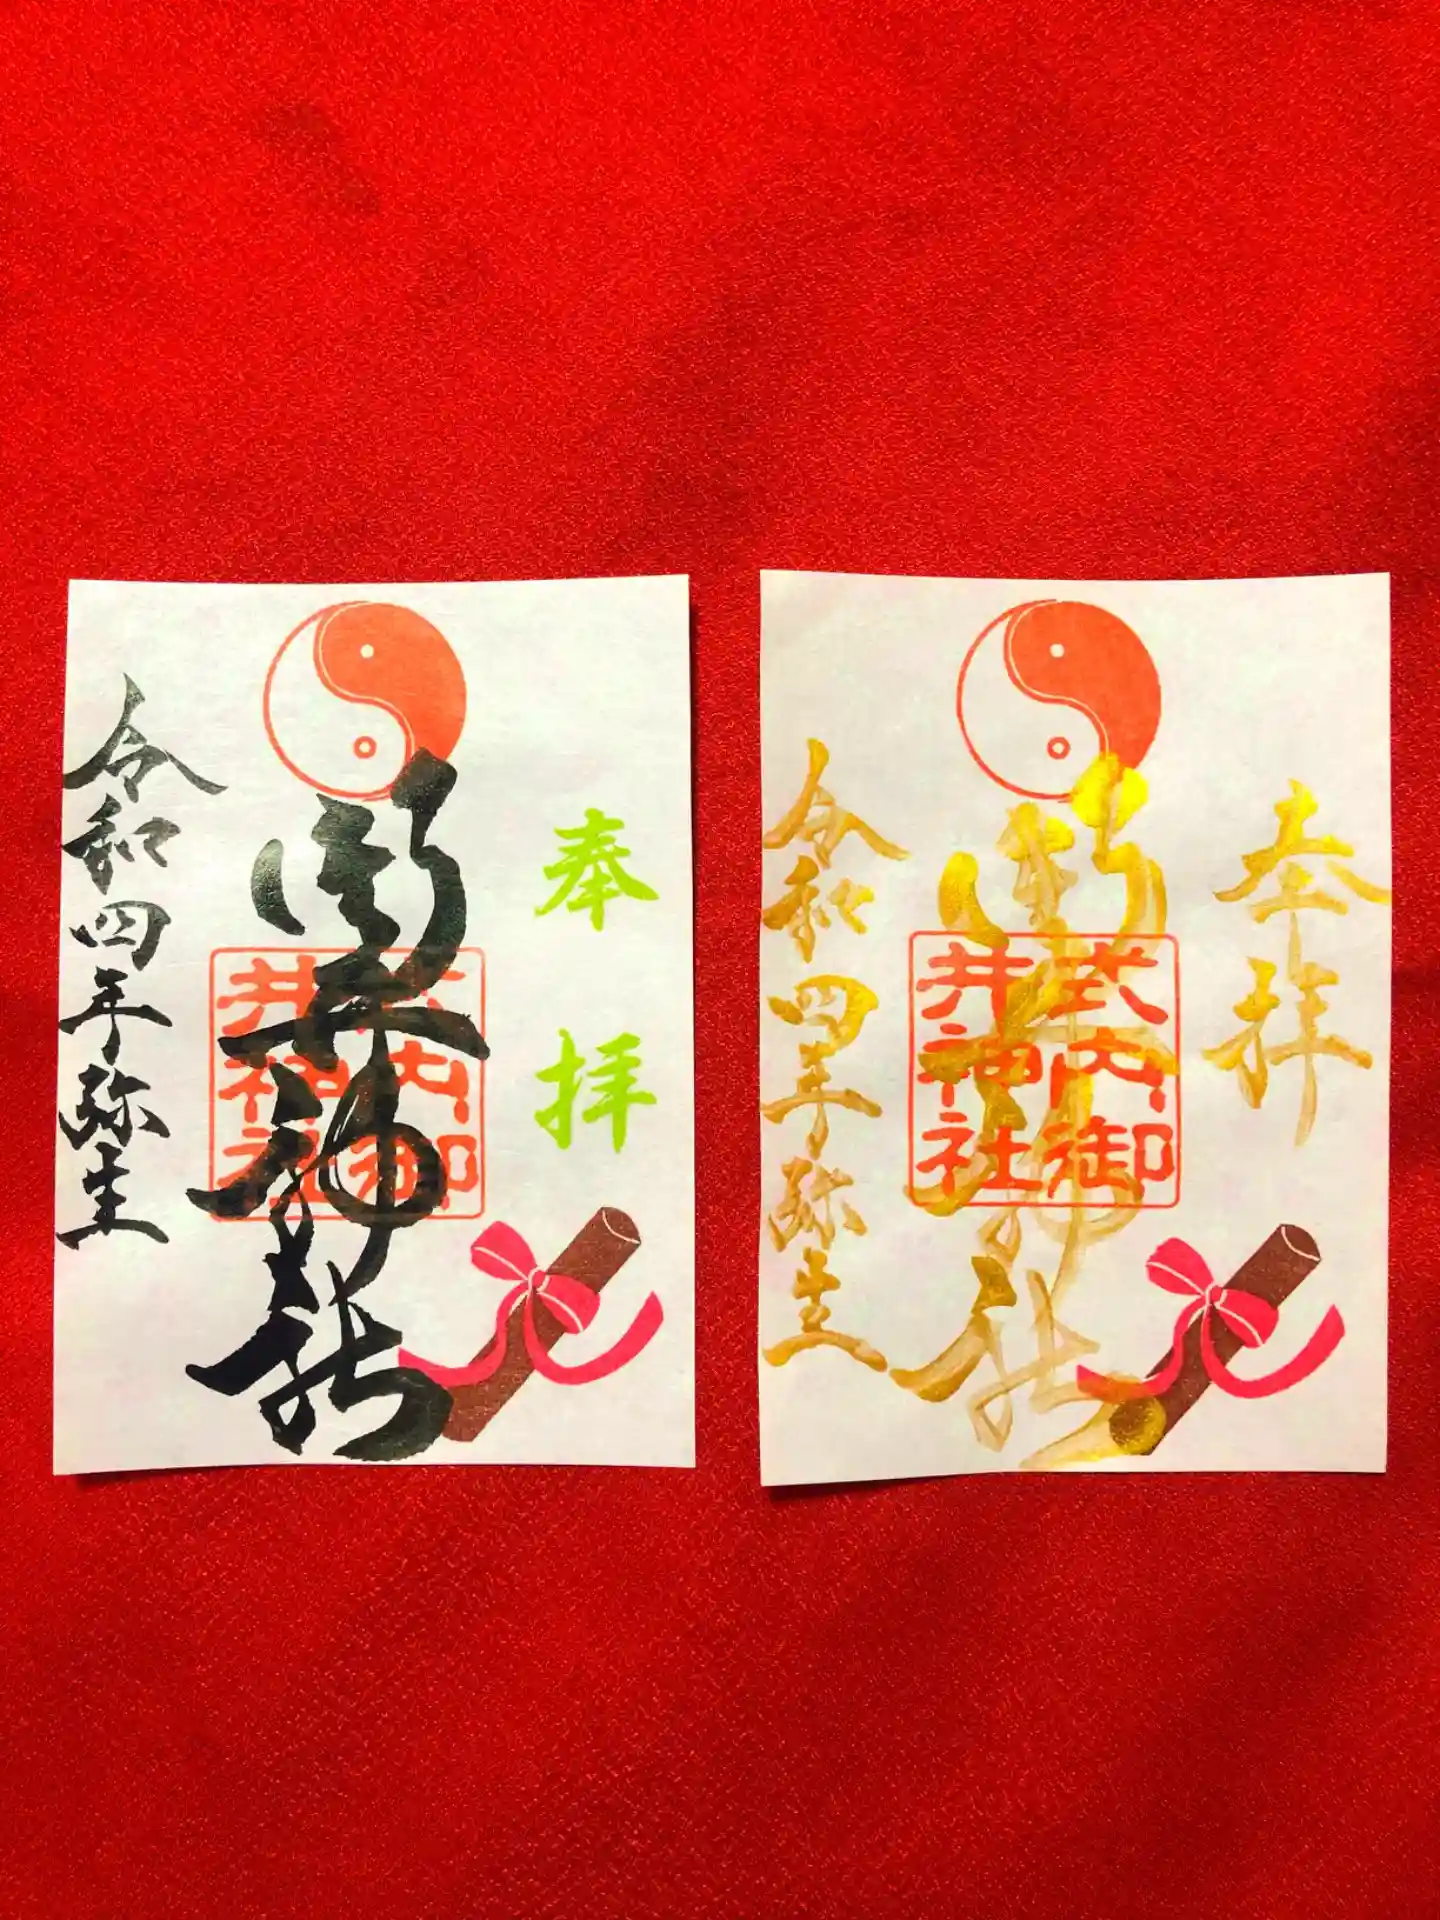 奉拝
御井神社
式内御
井神社
令和四年弥生
奉拝
御井神社
式内御
井神社
令和四年弥生